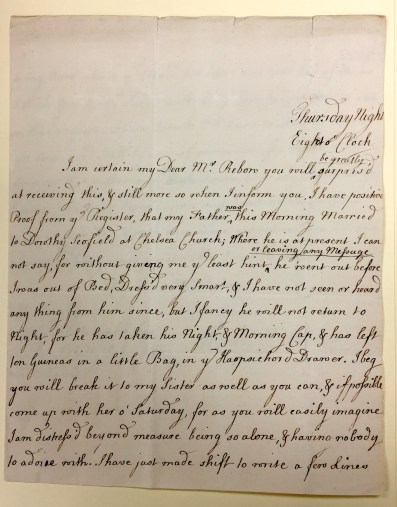 Thursday Night
Eight o' Clock
be greatly
I am certain my Dear Mr. Rebow you will ^ surpris'd
at receiving this, & still more so when I inform you, I have positive
was
Proof from ye Register, that my Father ^ this Morning Married
to Dorothy Scofield at Chelsea Church; Where he is at present I can
or leaving any Message
not say, for without giveng me ye least hint ^ he went out before
I was out of Bed, Dress'd very Smart, & I have not seen or heard
any thing from him since, but I fancy he will not return to
Night, for he has taken his Night, & Morning Cap, & has left
ten Guineas in a little Bag, in ye Harpsichord Drawer. I beg
you will break it to my Sister as well as you can, & if possible
come up with her o' Saturday, for as you will easily imagine
I am distress'd beyond measure being so alone, & having nobody
to advise with. I have just made shift to write a few Lines